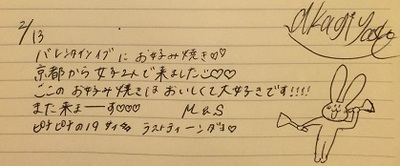 2/13
バレンタインイブにお好み焼き♡♡
京都から女子2人で来ました♡♡
ここのお好み焼きはおいしくて大好きです!!!!
また来まーす♡♡♡ M&S
ピチピチの19才 ラストティーンだョ